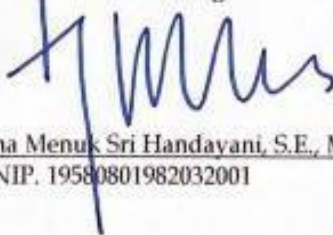 na Menuk Sri Handayani, S.E., M
NIP. 19580801982032001